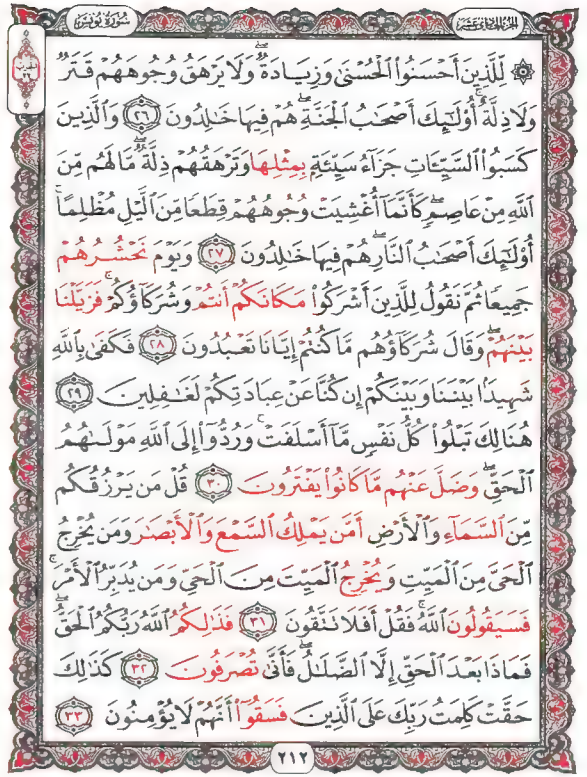 سُورَةُ يُونُسَ
الجزء الحادي عشر
الحزب ٢٢
۞ لِّلَّذِينَ أَحْسَنُوا۟ ٱلْحُسْنَىٰ وَزِيَادَةٌ ۖ وَلَا يَرْهَقُ وُجُوهَهُمْ قَتَرٌ
وَلَا ذِلَّةٌ ۚ أُو۟لَٰٓئِكَ أَصْحَٰبُ ٱلْجَنَّةِ ۖ هُمْ فِيهَا خَٰلِدُونَ ٢٦ وَٱلَّذِينَ
كَسَبُوا۟ ٱلسَّيِّـَٔاتِ جَزَآءُ سَيِّئَةٍۭ بِمِثْلِهَا وَتَرْهَقُهُمْ ذِلَّةٌ ۖ مَّا لَهُم مِّنَ
ٱللَّهِ مِنْ عَاصِمٍ ۖ كَأَنَّمَآ أُغْشِيَتْ وُجُوهُهُمْ قِطَعًا مِّنَ ٱلَّيْلِ مُظْلِمًا ۚ
أُو۟لَٰٓئِكَ أَصْحَٰبُ ٱلنَّارِ ۖ هُمْ فِيهَا خَٰلِدُونَ ٢٧ وَيَوْمَ نَحْشُرُهُمْ
جَمِيعًا ثُمَّ نَقُولُ لِلَّذِينَ أَشْرَكُوا۟ مَكَانَكُمْ أَنتُمْ وَشُرَكَآؤُكُمْ ۚ فَزَيَّلْنَا
بَيْنَهُمْ ۖ وَقَالَ شُرَكَآؤُهُم مَّا كُنتُمْ إِيَّانَا تَعْبُدُونَ ٢٨ فَكَفَىٰ بِٱللَّهِ
شَهِيدًۢا بَيْنَنَا وَبَيْنَكُمْ إِن كُنَّا عَنْ عِبَادَتِكُمْ لَغَٰفِلِينَ ٢٩
هُنَالِكَ تَبْلُوا۟ كُلُّ نَفْسٍ مَّآ أَسْلَفَتْ ۚ وَرُدُّوٓا۟ إِلَى ٱللَّهِ مَوْلَىٰهُمُ
ٱلْحَقِّ ۖ وَضَلَّ عَنْهُم مَّا كَانُوا۟ يَفْتَرُونَ ٣٠ قُلْ مَن يَرْزُقُكُم
مِّنَ ٱلسَّمَآءِ وَٱلْأَرْضِ أَمَّن يَمْلِكُ ٱلسَّمْعَ وَٱلْأَبْصَٰرَ وَمَن يُخْرِجُ
ٱلْحَىَّ مِنَ ٱلْمَيِّتِ وَيُخْرِجُ ٱلْمَيِّتَ مِنَ ٱلْحَىِّ وَمَن يُدَبِّرُ ٱلْأَمْرَ ۚ
فَسَيَقُولُونَ ٱللَّهُ ۚ فَقُلْ أَفَلَا تَتَّقُونَ ٣١ فَذَٰلِكُمُ ٱللَّهُ رَبُّكُمُ ٱلْحَقُّ ۖ
فَمَاذَا بَعْدَ ٱلْحَقِّ إِلَّا ٱلضَّلَٰلُ ۖ فَأَنَّىٰ تُصْرَفُونَ ٣٢ كَذَٰلِكَ
حَقَّتْ كَلِمَتُ رَبِّكَ عَلَى ٱلَّذِينَ فَسَقُوٓا۟ أَنَّهُمْ لَا يُؤْمِنُونَ ٣٣
٢١٢